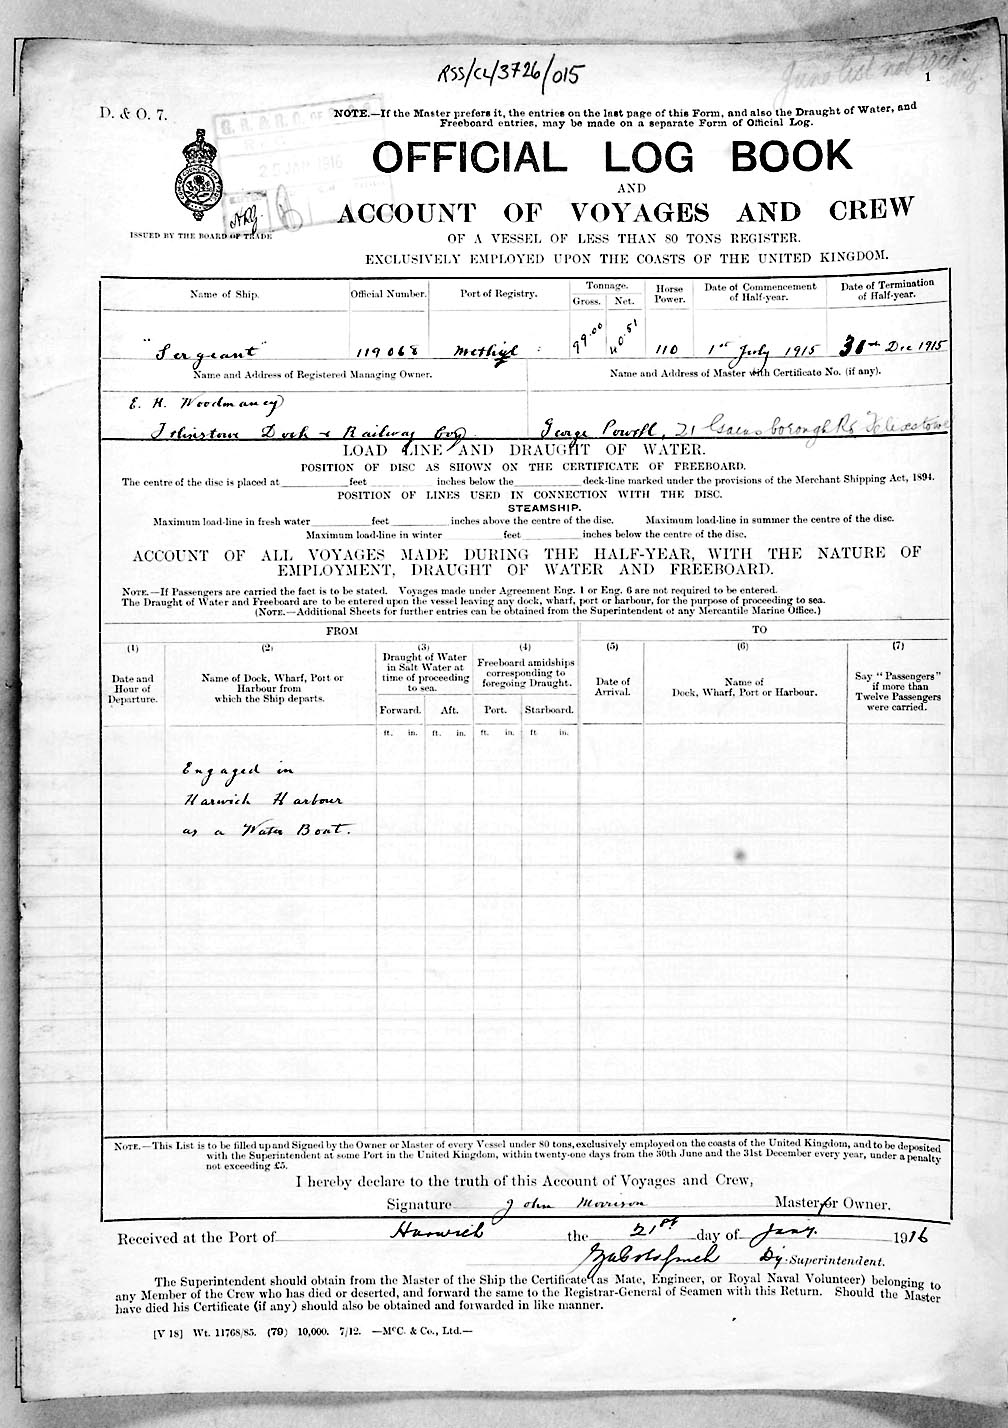 RSS/CL/3726/015
June list not recd.
1
D. & O. 7.
NOTE.—If the Master prefers it, the entries on the last page of this Form, and also the Draught of Water, and
Freeboard entries, may be made on a separate Form of Official Log.
OFFICIAL LOG BOOK
AND
ACCOUNT OF VOYAGES AND CREW
ISSUED BY THE BOARD OF TRADE
OF A VESSEL OF LESS THAN 80 TONS REGISTER.
EXCLUSIVELY EMPLOYED UPON THE COASTS OF THE UNITED KINGDOM.
Name of Ship. Official Number. Port of Registry. Tonnage. Gross. Net. Horse Power. Date of Commencement of Half-year. Date of Termination of Half-year.
"Sergeant" 119068 Methyl 99.00 40.51 110 1st July 1915 31st Dec 1915
Name and Address of Registered Managing Owner. Name and Address of Master with Certificate No. (if any).
E. H. Woodmancy
Dock & Railway Coy George Powell, 21 Gainsborough Rd Felixstowe
LOAD LINE AND DRAUGHT OF WATER.
POSITION OF DISC AS SHOWN ON THE CERTIFICATE OF FREEBOARD.
The centre of the disc is placed at feet inches below the deck-line marked under the provisions of the Merchant Shipping Act, 1894.
POSITION OF LINES USED IN CONNECTION WITH THE DISC.
STEAMSHIP.
Maximum load-line in fresh water feet inches above the centre of the disc. Maximum load-line in summer the centre of the disc.
Maximum load-line in winter feet inches below the centre of the disc.
ACCOUNT OF ALL VOYAGES MADE DURING THE HALF-YEAR, WITH THE NATURE OF
EMPLOYMENT, DRAUGHT OF WATER AND FREEBOARD.
NOTE.—If Passengers are carried the fact is to be stated. Voyages made under Agreement Eng. 1 or Eng. 6 are not required to be entered.
The Draught of Water and Freeboard are to be entered upon the vessel leaving any dock, wharf, port or harbour, for the purpose of proceeding to sea.
(NOTE.—Additional Sheets for further entries can be obtained from the Superintendent of any Mercantile Marine Office.)
FROM TO
(1) (2) (3) (4) (5) (6) (7)
Date and Hour of Departure.
Name of Dock, Wharf, Port or Harbour from which the Ship departs.
Draught of Water in Salt Water at time of proceeding to sea.
Freeboard amidships corresponding to foregoing Draught.
Date of Arrival.
Name of Dock, Wharf, Port or Harbour.
Say "Passengers" if more than Twelve Passengers were carried.
Forward. Aft. Port. Starboard.
ft. in. ft. in. ft. in. ft in.
Engaged in
Harwich Harbour
as a Water Boat.
NOTE.—This List is to be filled up and Signed by the Owner or Master of every Vessel under 80 tons, exclusively employed on the coasts of the United Kingdom, and to be deposited
with the Superintendent at some Port in the United Kingdom, within twenty-one days from the 30th June and the 31st December every year, under a penalty
not exceeding £5.
I hereby declare to the truth of this Account of Voyages and Crew,
Signature John Morrison Master or Owner.
Received at the Port of Harwich the 21st day of Jany. 1916
Dy. Superintendent.
The Superintendent should obtain from the Master of the Ship the Certificate (as Mate, Engineer, or Royal Naval Volunteer) belonging to
any Member of the Crew who has died or deserted, and forward the same to the Registrar-General of Seamen with this Return. Should the Master
have died his Certificate (if any) should also be obtained and forwarded in like manner.
[V 18] Wt. 11768/85. (79) 10,000. 7/12. —McC. & Co., Ltd.—